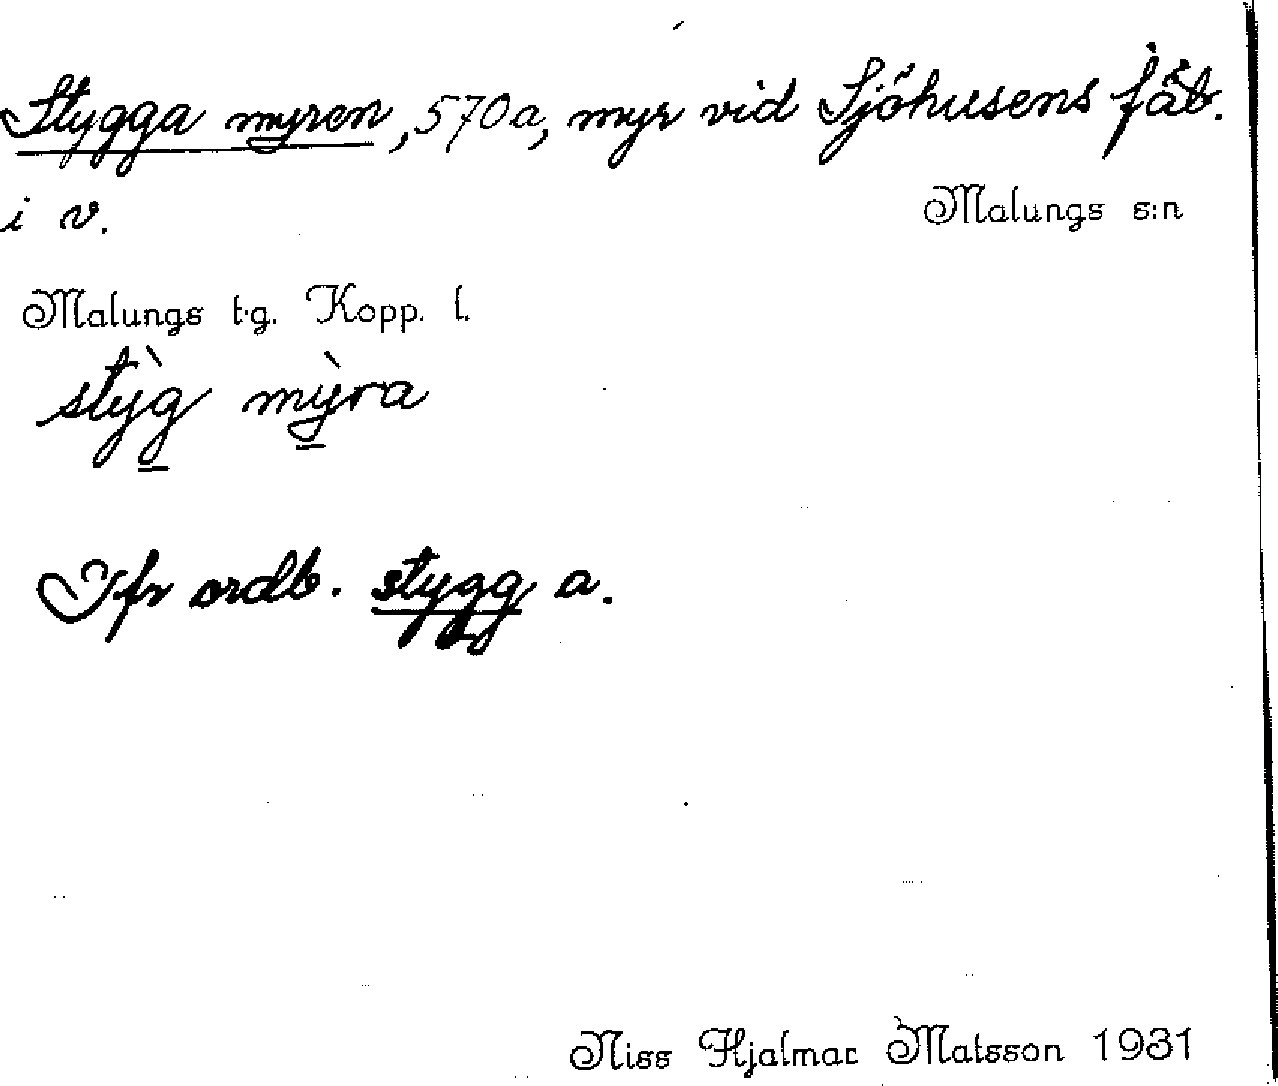 Stygga myren, 570a, myr vid Sjöhusens fäb.
i v.
Malungs s:n
Malungs t.g. Kopp. l.
stỳg mỳra
Jfr ordb. stygg a.
Niss Hjalmar Matsson 1931